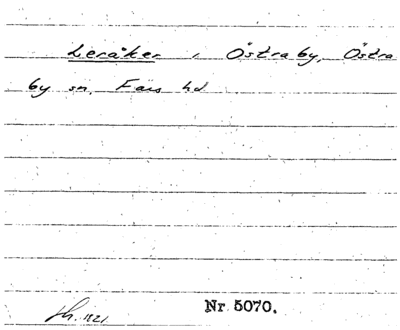 Leråker, Östraby, Östra
by sn, Färs hd
Nr 5070.